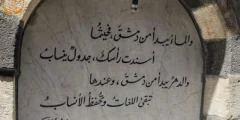 والماء يبدأ من دمشق، فحيثما
أسندت رأسك، جدول ينساب
والدهر يبدأ من دمشق، وعندها
تبقى اللغات وتحفظ الأنساب